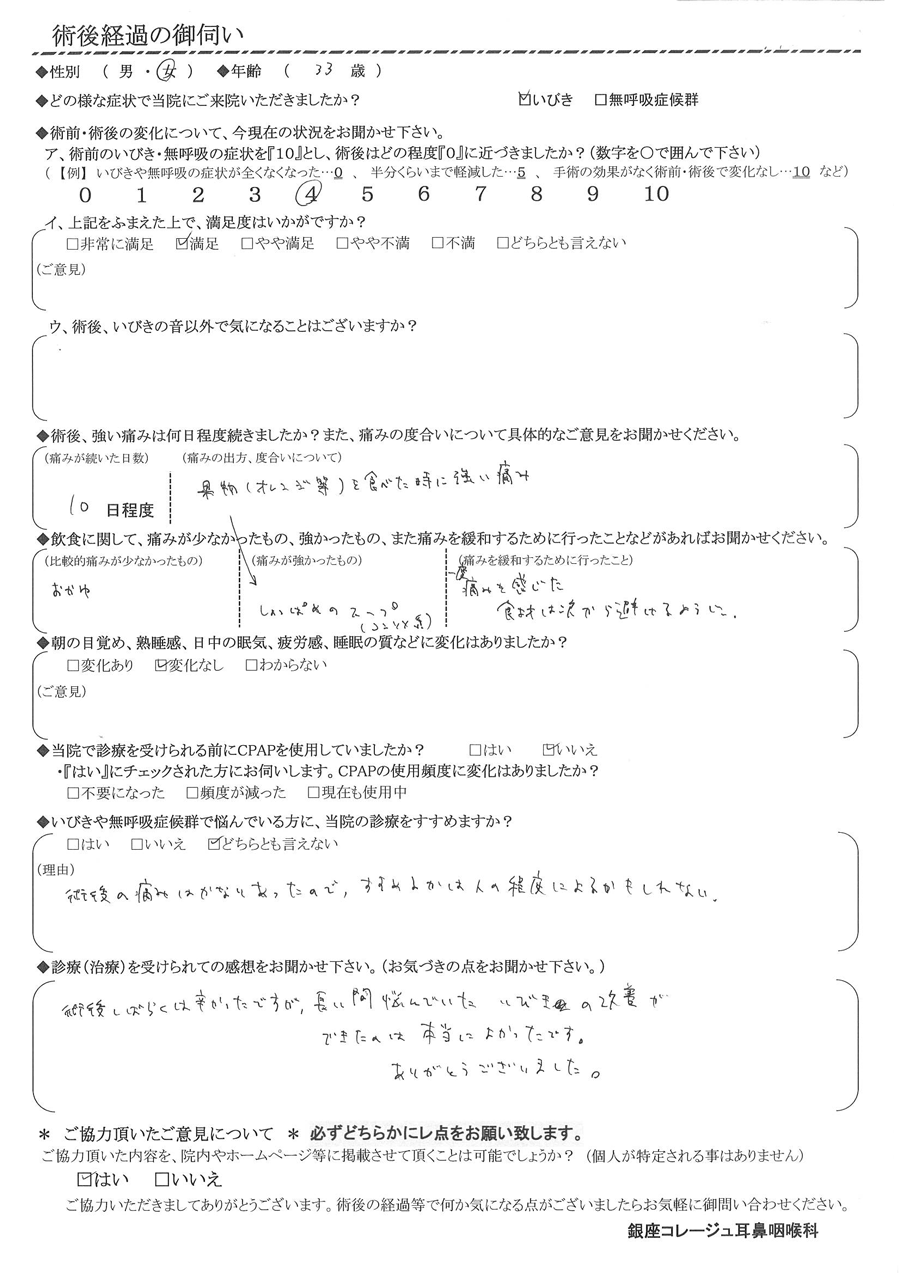 術後経過の御伺い
◆性別 (男・女) ◆年齢 (33歳)
◆どの様な症状で当院にご来院いただきましたか? ☑いびき □無呼吸症候群
◆術前・術後の変化について、今現在の状況をお聞かせ下さい。
ア、術前のいびき・無呼吸の症状を『10』とし、術後はどの程度『0』に近づきましたか?(数字を〇で囲んで下さい)
(【例】いびきや無呼吸の症状が全くなくなった…0、半分くらいまで軽減した…5、手術の効果がなく術前・術後で変化なし…10 など)
0 1 2 3 4 5 6 7 8 9 10
イ、上記をふまえた上で、満足度はいかがですか?
□非常に満足 ☑満足 □やや満足 □やや不満 □不満 □どちらとも言えない
(ご意見)
ウ、術後、いびきの音以外で気になることはございますか?
◆術後、強い痛みは何日程度続きましたか?また、痛みの度合いについて具体的なご意見をお聞かせください。
(痛みが続いた日数) (痛みの出方、度合いについて)
果物(オレンジ等)を食べた時に強い痛み
10 日程度
◆飲食に関して、痛みが少なかったもの、強かったもの、また痛みを緩和するために行ったことなどがあればお聞かせください。
(比較的痛みが少なかったもの) (痛みが強かったもの) (痛みを緩和するために行ったこと)
おかゆ 一度痛みを感じた
しょっぱめのスープ 食材は次から避けるように。
(コンソメ系)
◆朝の目覚め、熟睡感、日中の眠気、疲労感、睡眠の質などに変化はありましたか?
□変化あり ☑変化なし □わからない
(ご意見)
◆当院で診療を受けられる前にCPAPを使用していましたか? □はい ☑いいえ
・『はい』にチェックされた方にお伺いします。CPAPの使用頻度に変化はありましたか?
□不要になった □頻度が減った □現在も使用中
◆いびきや無呼吸症候群で悩んでいる方に、当院の診療をすすめますか?
□はい □いいえ ☑どちらとも言えない
(理由)
術後の痛みはかなりあったので、すすめるかは人の程度によるかもしれない。
◆診療(治療)を受けられての感想をお聞かせ下さい。(お気づきの点をお聞かせ下さい。)
術後しばらくは辛かったですが、長い間悩んでいた いびきの改善が
できたのは本当によかったです。
ありがとうございました。
* ご協力頂いたご意見について * 必ずどちらかにレ点をお願い致します。
ご協力頂いた内容を、院内やホームページ等に掲載させて頂くことは可能でしょうか?(個人が特定される事はありません)
☑はい □いいえ
ご協力いただきましてありがとうございます。術後の経過等で何か気になる点がございましたらお気軽に御問い合わせください。
銀座コレージュ耳鼻咽喉科